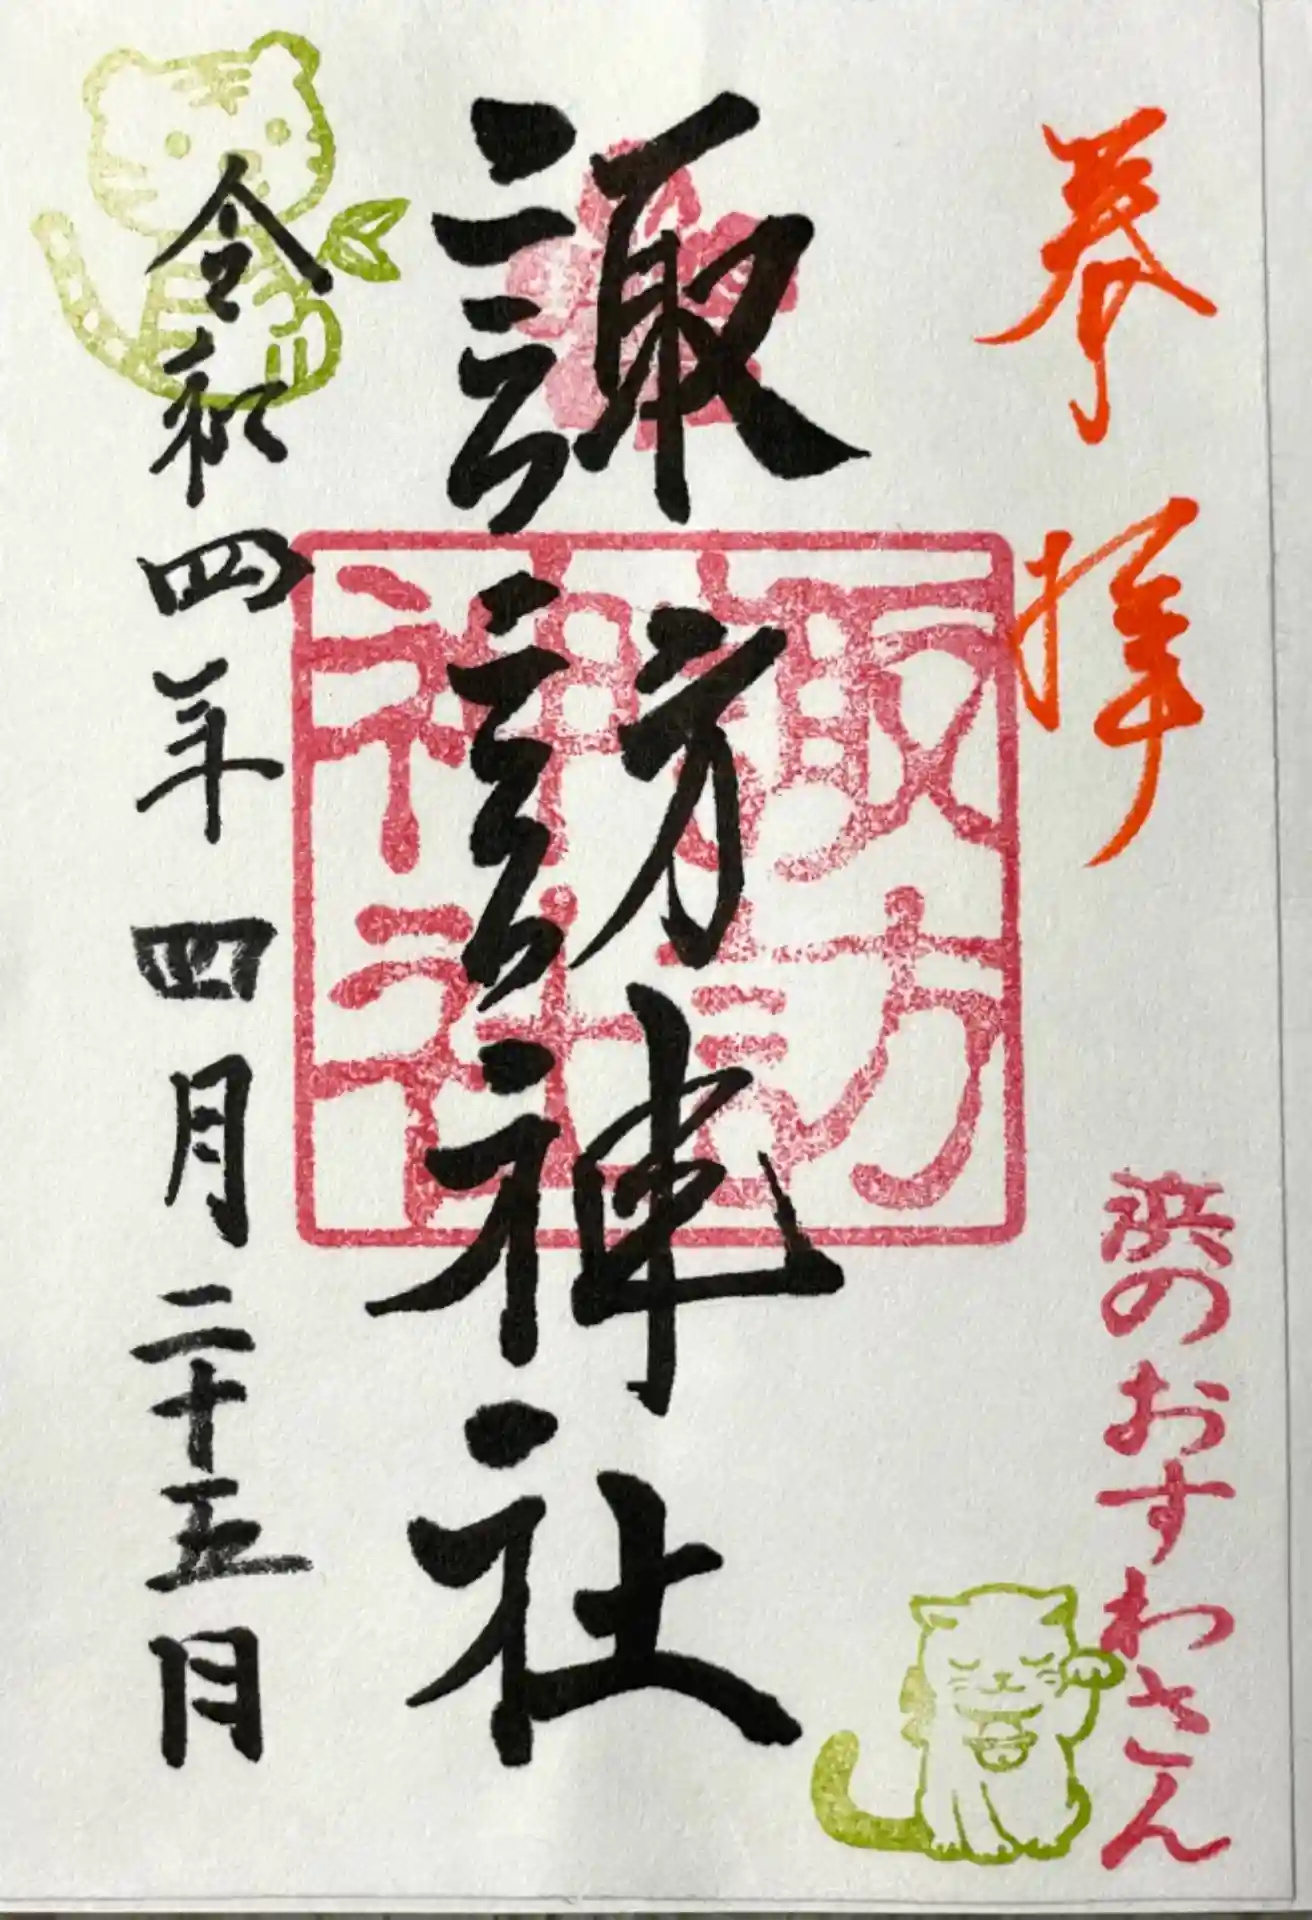 奉拝
浜のおすわさん
諏訪神社
諏訪
神社
令和四年四月二十五日